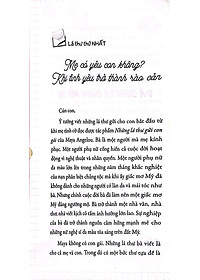 Lá thư thứ NHẤT
Mẹ có yêu con không?
Khi tình yêu trở thành rào cản
Cản con,
Ý tưởng viết những lá thư gửi cho con bắt đầu từ
khi mẹ tình cờ đọc được tác phẩm Những lá thư gửi con
gái của Maya Angelou. Bà là một người mẹ mà mẹ kính
phục. Một người phụ nữ cống hiến cả cuộc đời hoạt
động vì nghệ thuật và nhân quyền. Một người phụ nữ
da màu lớn lên trong những năm tháng khắc nghiệt
của nạn phân biệt chủng tộc mà khi ấy giấc mơ Mỹ đã
không dành cho những người có màu da như bà. Nhưng
chính cuộc đời bà đã đi làm nên một giấc mơ
Mỹ đáng ngưỡng mộ. Bà trở thành một nhà văn, nhà
thơ nhà viết kịch có tầm ảnh hưởng lớn lao. Sự nghiệp
của bà đã trở thành nguồn cảm hứng mạnh mẽ cho
những nữ nghệ sĩ da màu tỏa sáng trên đất Mỹ.
Maya không có con gái. Những lá thư bà viết là
cho cả mẹ và con. Trong đó có một bức thư tựa đề là